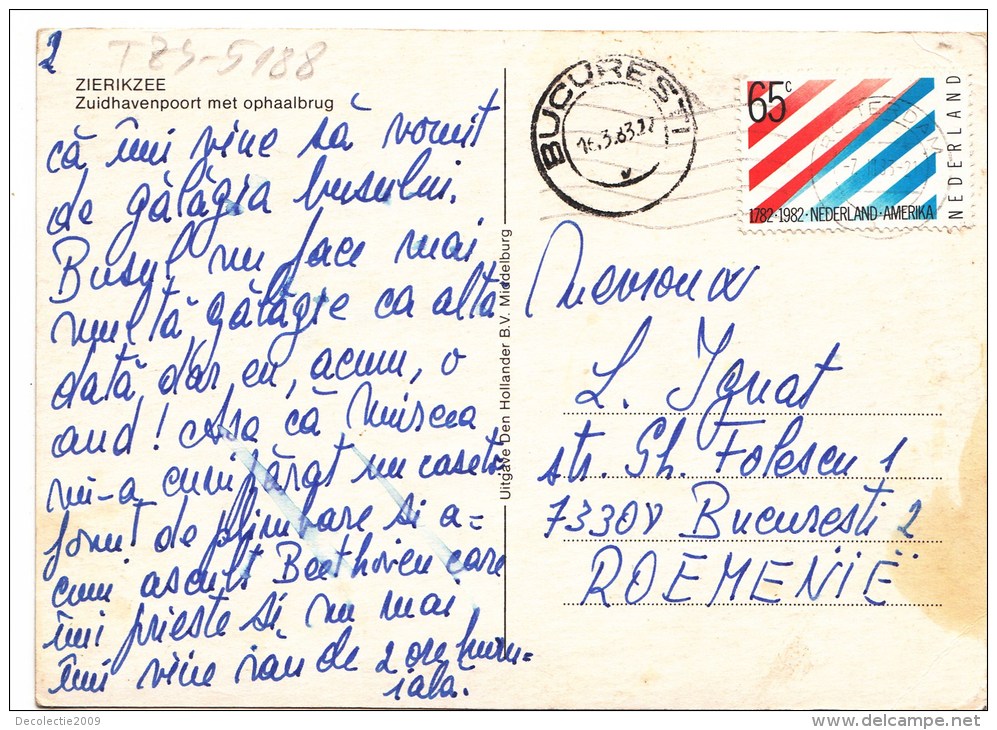 2
TZS-5188
ZIERIKZEE
Zuidhavenpoort met ophaalbrug
că îmi vine să vomit
de gălăgia busului.
Busul nu face mai
multă gălăgie ca altă
dată, dar eu, acum, o
aud! Așa că Mircea
mi-a cumpărat un caseto
fon de plimbare si a=
cum ascult Beethoven care
îmi prieste si nu mai
îmi vine rău de 2 ore
jală.
Uitgave Den Hollander B.V. Middelburg
BUCURESTI
16.3.83.22
65c
1782·1982·NEDERLAND·AMERIKA
NEDERLAND
L. Ignat
str. Gh. Folescu 1
73308 Bucuresti 2
ROEMENIË
Decolectie2009
www.delcampe.net